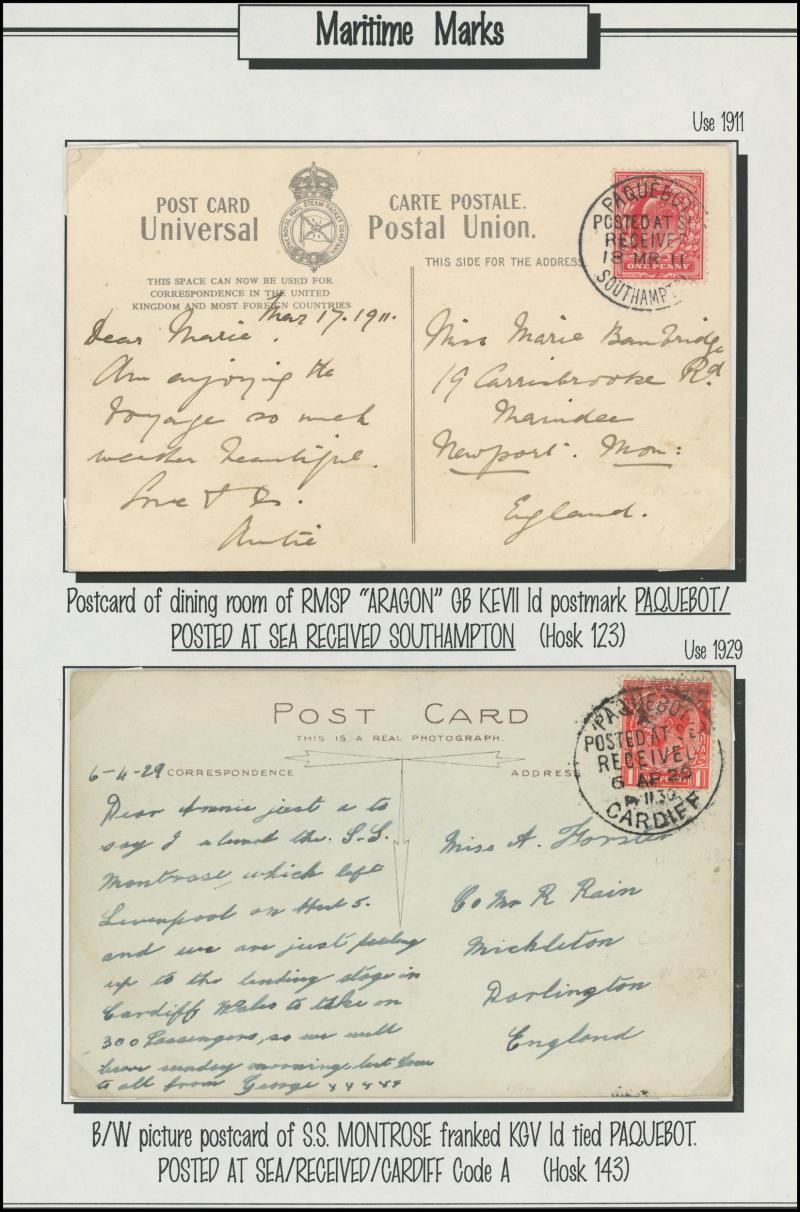 Maritime Marks
Use 1911
POST CARD
Universal
CARTE POSTALE.
Postal Union.
THE ROYAL MAIL STEAM PACKET COMPANY
THIS SPACE CAN NOW BE USED FOR
CORRESPONDENCE IN THE UNITED
KINGDOM AND MOST FOREIGN COUNTRIES
THIS SIDE FOR THE ADDRESS
PAQUEBOT
POSTED AT S
RECEIVED
18 MR 11
SOUTHAMPT
ONE PENNY
Mar 17. 1911.
Dear Marie.
Am enjoying the
voyage so much
weather beautiful.
Love &
Auntie
Miss Marie Bambridge
19 Carrisbrooke Rd
Maindee
Newport. Mon:
England.
Postcard of dining room of RMSP "ARAGON" GB KEVII 1d postmark PAQUEBOT/
POSTED AT SEA RECEIVED SOUTHAMPTON (Hosk 123)
Use 1929
POST CARD
THIS IS A REAL PHOTOGRAPH.
6-4-29
CORRESPONDENCE
ADDRESS
PAQUEBOT
POSTED AT SE
RECEIVED
6 AP 29
A 11.30
CARDIFF
Dear Annie just a to
say I aboard the S.S.
Montrose, which left
Liverpool on
and we are just pulling
up to the landing stage in
Cardiff Wales to take on
300 Passengers, so we will
leave sunday morning, best love
to all from George xxxxx
Miss A. Forster
Co Mr R Rain
Mickleton
Darlington
England
B/W picture postcard of S.S. MONTROSE franked KGV 1d tied PAQUEBOT.
POSTED AT SEA/RECEIVED/CARDIFF Code A (Hosk 143)